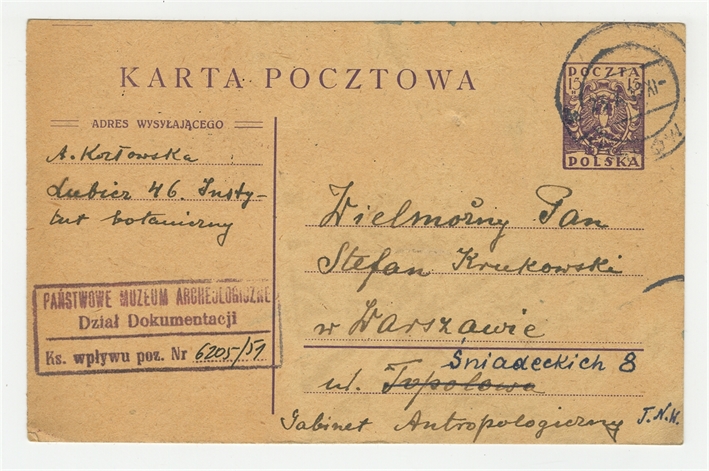 KARTA POCZTOWA
POCZTA
15 15
POLSKA
ADRES WYSYŁAJĄCEGO
A. Kozłowska
Lubicz 46. Insty-
tut botaniczny
PAŃSTWOWE MUZEUM ARCHEOLOGICZNE
Dział Dokumentacji
Ks. wpływu poz. Nr 6205/51
Wielmożny Pan
Stefan Krukowski
w Warszawie
Śniadeckich 8
ul. Topolowa
Gabinet Antropologiczny T.N.W.